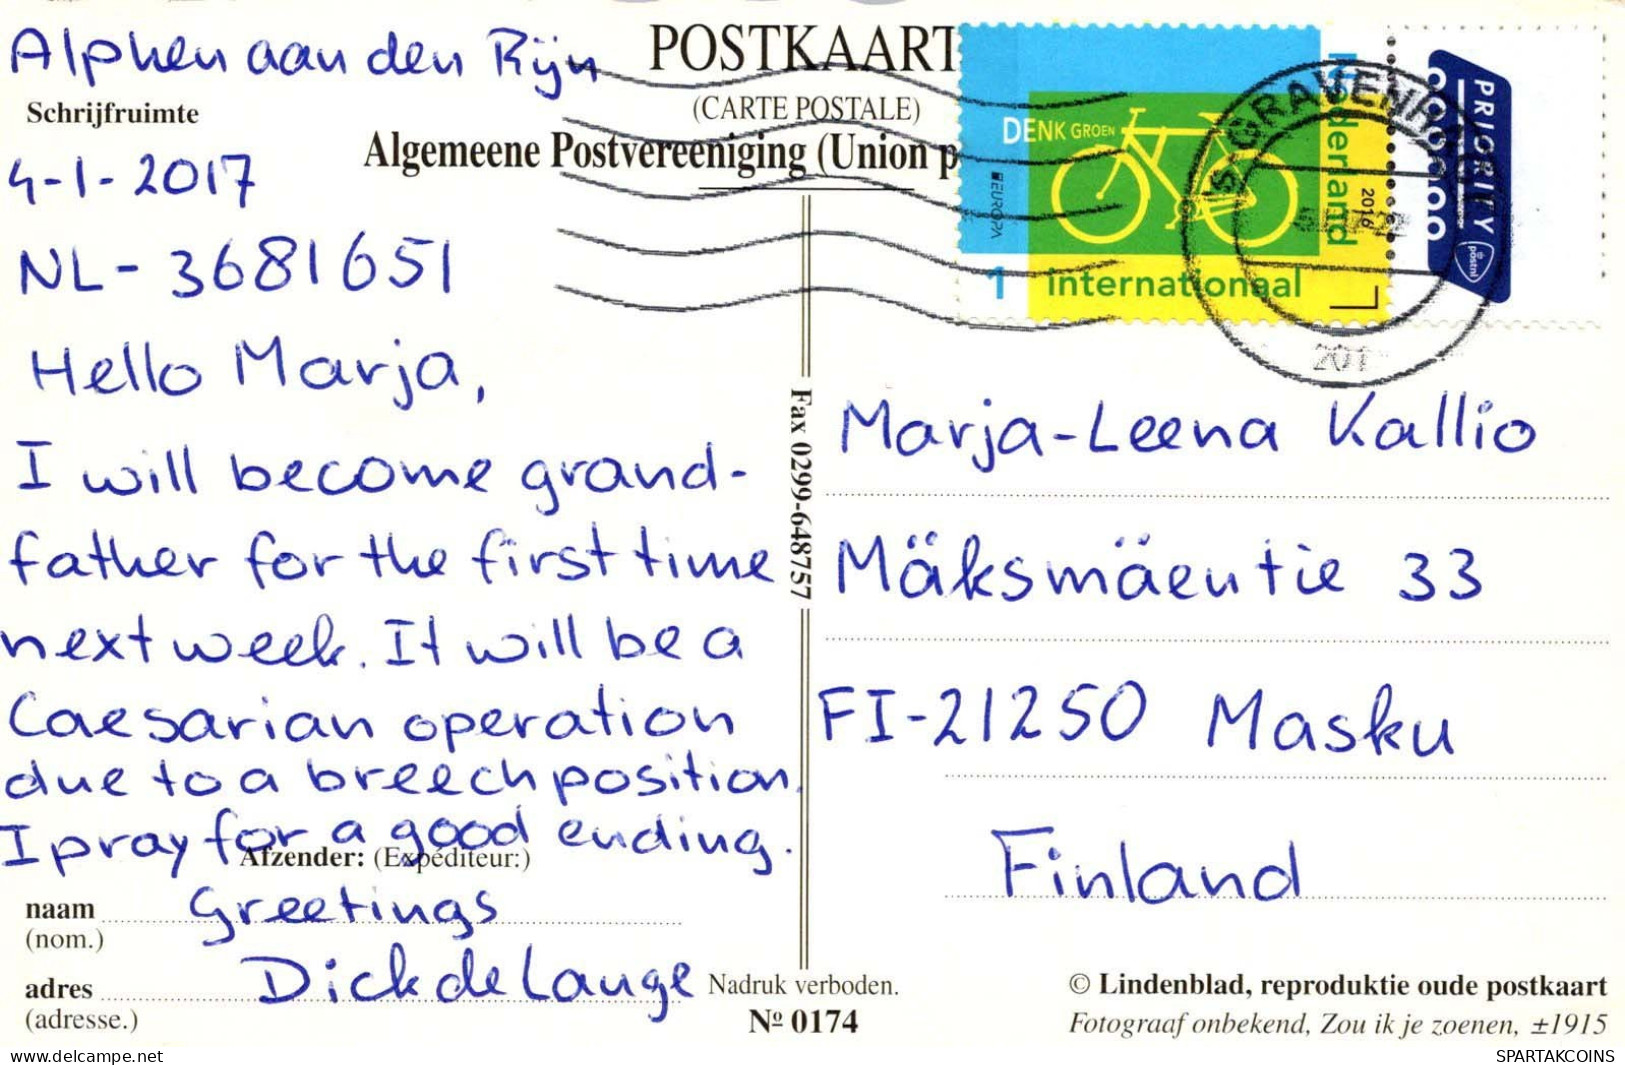 Alphen aan den Rijn
Schrijfruimte
4-1-2017
NL-3681651
Hello Marja,
I will become grand-
father for the first time
next week. It will be a
Caesarian operation
due to a breech position.
I pray for a good ending.
Afzender: (Expéditeur:)
naam
(nom.)
Greetings
adres
(adresse.)
Dick de Lange
POSTKAART
(CARTE POSTALE)
Algemeene Postvereeniging (Union p
DENK GROEN
EUROPA
1 internationaal
Nederland
2016
PRIORITY
postnl
'S-GRAVENHAGE
201
Fax 0299-648757
Marja-Leena Kallio
Mäksmäentie 33
FI-21250 Masku
Finland
Nadruk verboden.
Nº 0174
© Lindenblad, reproduktie oude postkaart
Fotograaf onbekend, Zou ik je zoenen, ±1915
www.delcampe.net
SPARTAKCOINS